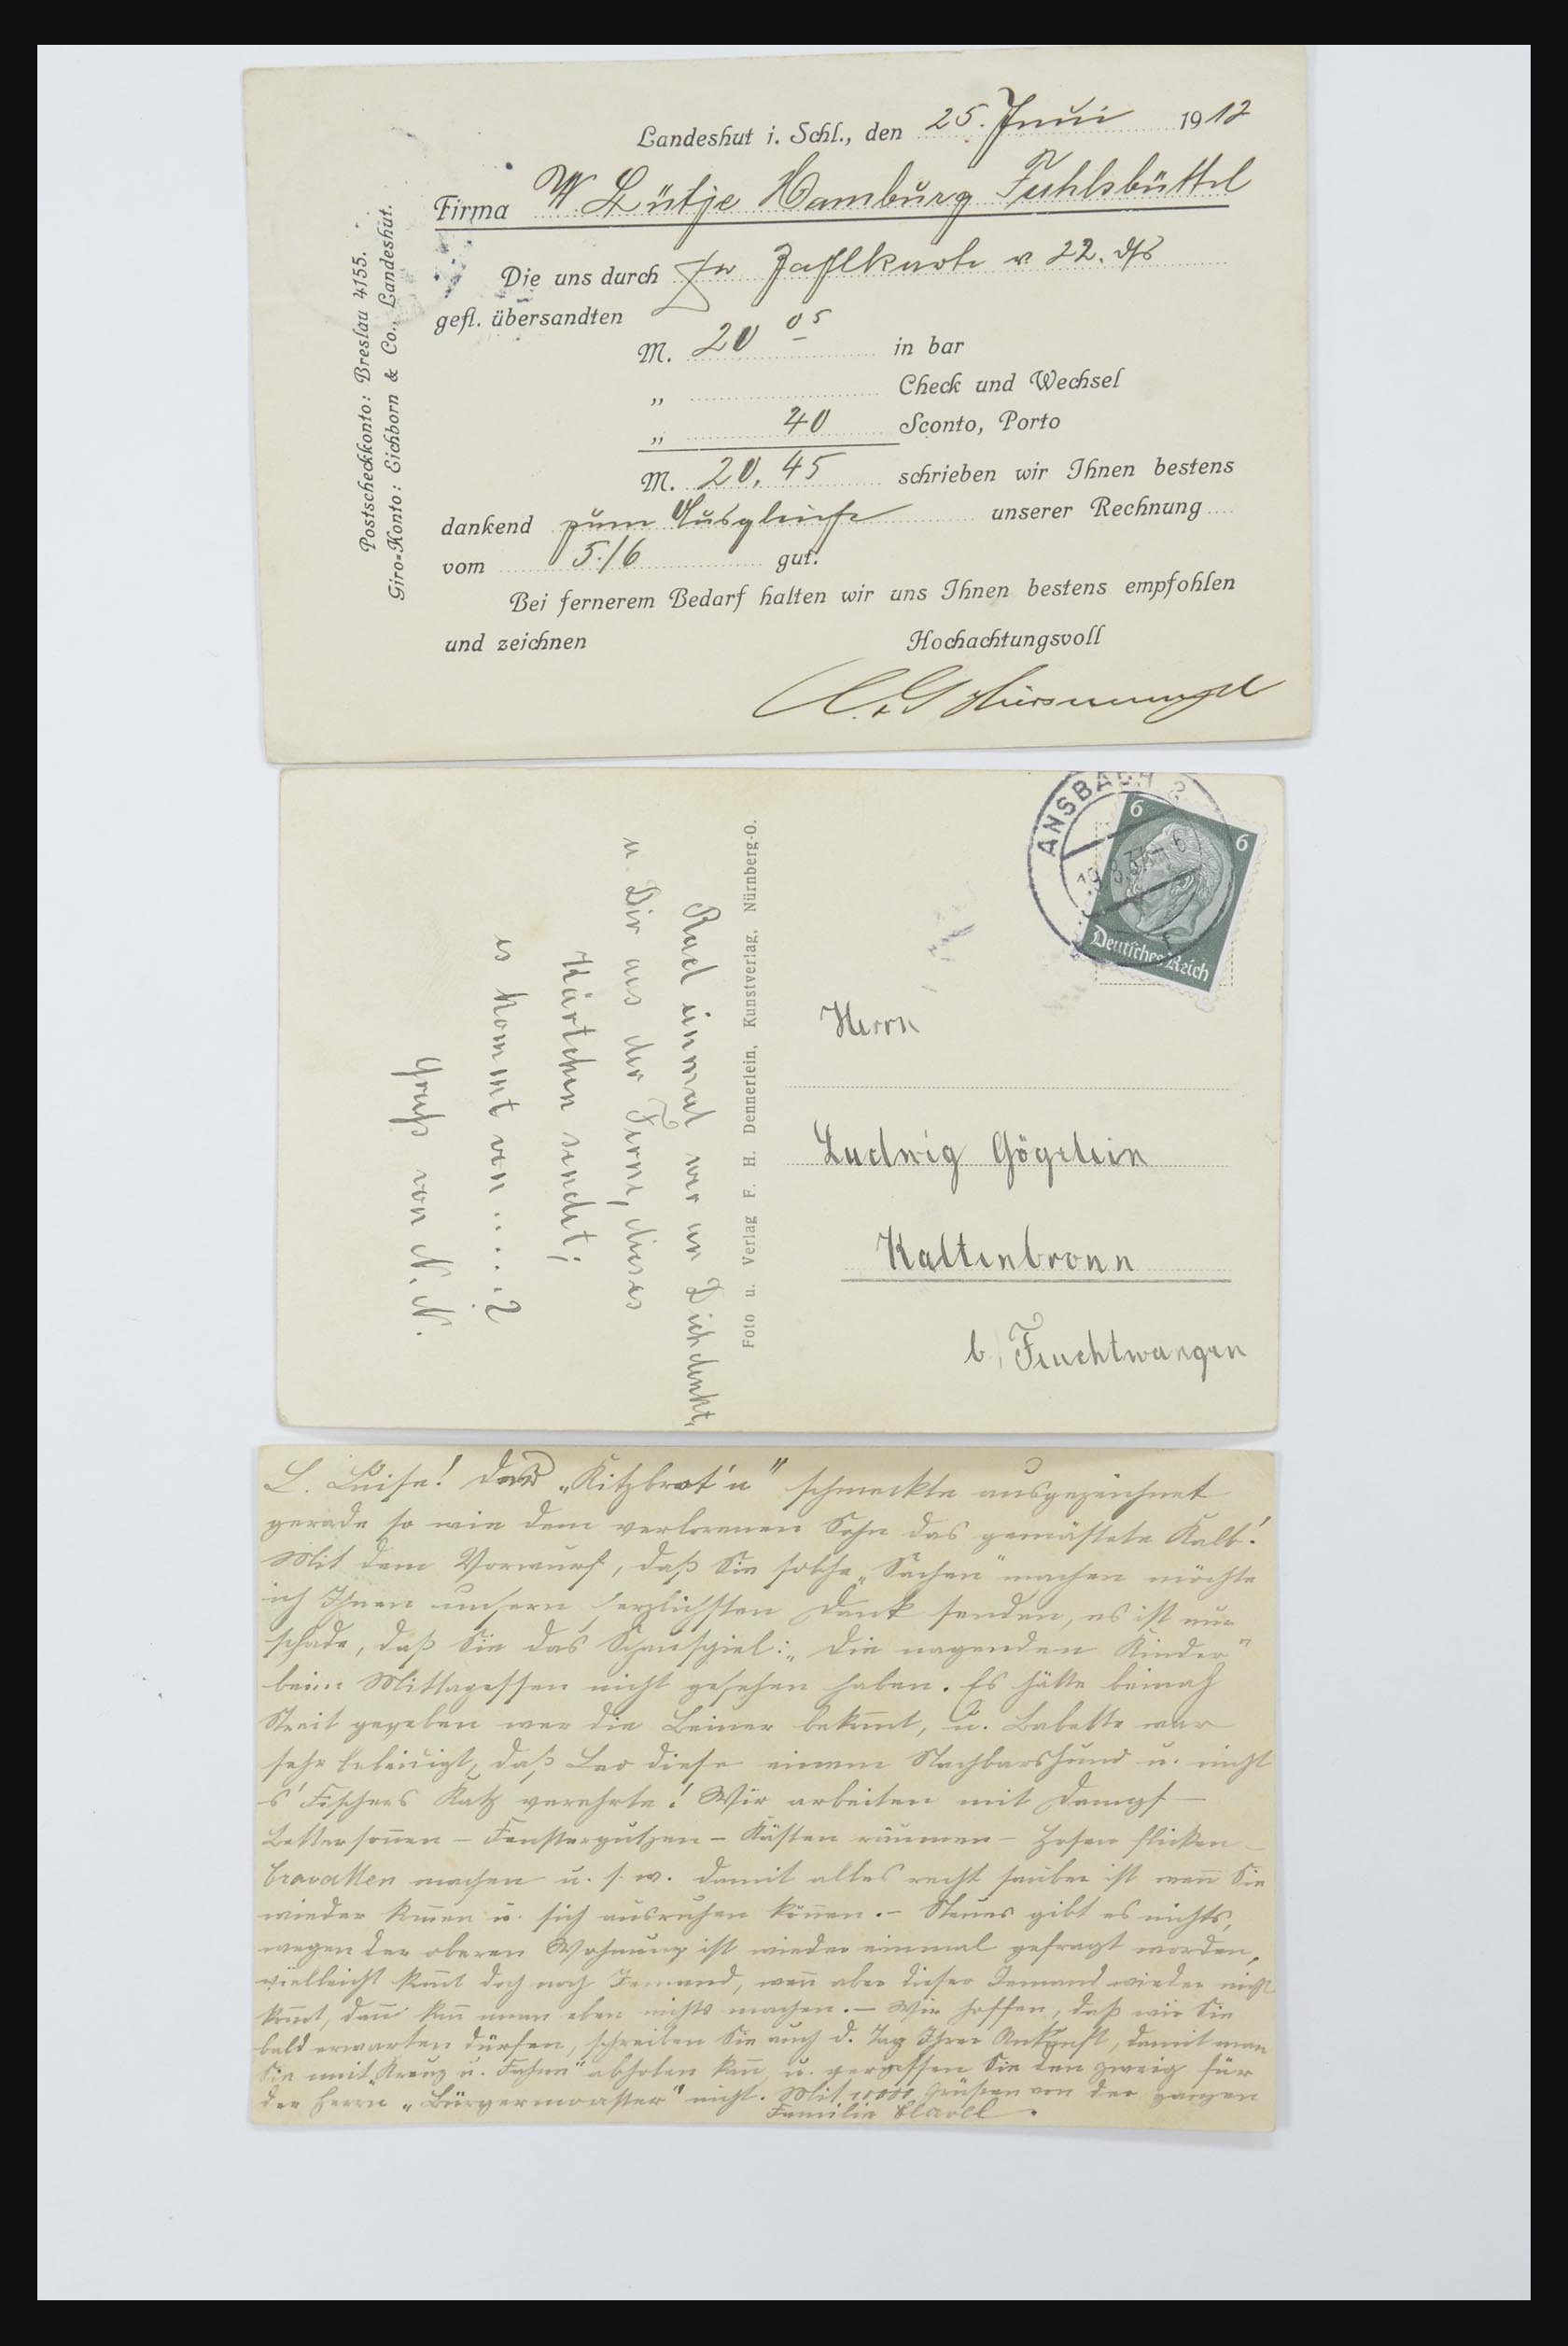 Landeshut i. Schl., den 25. Juni 1912
Firma W Lütje Hamburg Fuhlsbüttel
Die uns durch Zahlkarte v 22. ds
gefl. übersandten
M. 20 05 in bar
„ Check und Wechsel
„ 40 Sconto, Porto
M. 20,45 schrieben wir Ihnen bestens
dankend zum Ausgleiche unserer Rechnung
vom 5./6 gut.
Bei fernerem Bedarf halten wir uns Ihnen bestens empfohlen
und zeichnen Hochachtungsvoll
Postscheckkonto: Breslau 4155.
Giro-Konto: Eichborn & Co., Landeshut.
ANSBACH 2
19.8.37-6
6 6
Deutsches Reich
Herrn
Ludwig Gögelein
Kaltenbronn
b. Feuchtwangen
Foto u. Verlag F. H. Dennerlein, Kunstverlag, Nürnberg-O.
Rad einmal wer an Dich denkt,
u Dir aus der Ferne, dieses
Kärtchen sendet;
es kommt von .....?
Gruß von N. N.
L. Luise! Das „Kitzbrat'n" schmeckte ausgezeichnet
gerade so wie dem verlorenen Sohn das gemästete Kalb!
Mit dem Vorwurf, daß Sie solche „Sachen" machen möchte
ich Ihnen unsern herzlichsten Dank senden, es ist nur
schade, daß Sie das Schauspiel: „Die nagenden Kinder"
beim Mittagessen nicht gesehen haben. Es hätte beinah
Streit gegeben wer die Beiner bekom̅t, u. Babette war
sehr beleidigt, daß Leo diese einem Nachbarshund u. nicht
s' Fischers Katz verehrte! Wir arbeiten mit Dampf –
Bettersonnen – Fensterputzen – Kästen räumen – Hosen flicken –
Cravatten machen u. s. w. damit alles recht sauber ist wen̅ Sie
wieder kom̅en u. sich ausruhen können. – Neues gibt es nichts,
wegen der oberen Wohnung ist wieder einmal gefragt worden,
vielleicht kom̅t doch noch Jemand, wen̅ aber dieser Jemand wieder nicht
kom̅t, dan̅ kan̅ man eben nichts machen. – Wir hoffen, daß wir Sie
bald erwarten dürfen, schreiben Sie auch d. Tag Ihrer Ankunft, damit man
Sie mit „Kreuz u. Fahne" abholen kan̅ u. vergessen Sie den Zweig für
den Herrn „Bürgermoaster" nicht. Mit 1000 Grüßen von der ganzen
Familie